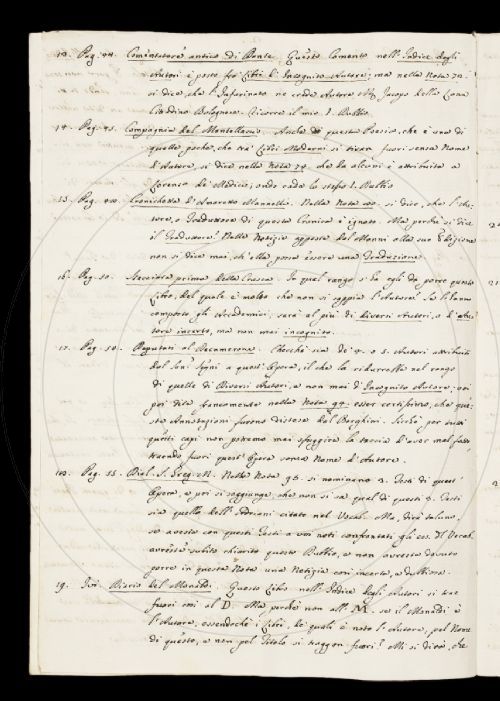 13. Pag. 44. Comentatore antico di Dante. Questo Comento nell'Indice degli
Autori è posto fra' Libri d'Incognito Autore; ma nella Nota 72.
si dice, che l'Infarinato ne crede Autore M. Jacopo della Lana
Cittadino Bolognese. Ricorre il mio I. Dubbio.
14. Pag. 45. Compagnia del Mantellaccio. Anche questa Poesia, che è una di
quelle poche, che tra' Libri Moderni si tiran fuori senza Nome
d'Autore, si dice nella Nota 74. che da alcuni è attribuita a
Lorenzo de' Medici; onde cade lo stesso I. Dubbio.
15. Pag. Cronichetta d'Amaretto Mannelli. Nella Nota si dice, che l'Au-
tore, o Traduttore di questa Cronica è ignoto. Ma perchè si dice
il Traduttore? Nella Notizia apposta dal Manni alla sua Edizione
non si dice mai, ch'ella possa essere una Traduzione.
16. Pag. 50. Stacciata prima della Crusca. In qual rango s'ha egli da porre questo
Libro, del quale è noto che non si sappia l'Autore? Se l'hanno
composto gli Accademici, sarà al più di diversi Autori, o d'Au-
tore incerto, ma non mai incognito.
17. Pag. 54. Deputati al Decamerone. Checchè sia de' 4. o 5. Autori attribuiti
dal Sen. a quest'Opera, il che la ridurrebbe nel rango
di quelle di Diversi Autori, e non mai d'Incognito Autore; voi
poi dite francamente nella Nota 94. esser certissimo, che que-
ste Annotazioni furono distese dal Borghini. Sicchè, per
questi capi non potremo mai sfuggire la taccia d'aver mal fatto,
traendo fuori quest'Opera senza Nome d'Autore.
18. Pag. 55. Dial. S. Greg. M. Nella Nota 98. si nominano 3. Testi di quest'
Opera, e poi si soggiunge, che non si sa qual di questi 3. Testi
sia quello dell' citato nel Vocab. Ma, dirà taluno,
se avesse con questi Testi a voi noti confrontati gli es. del Vocab.
avreste subito chiarito questo Dubbio, e non avreste dovuto
porre in questa Nota una Notizia così incerta, e dubbiosa.
19. Ivi. Diario del Monaldi. Questo Libro nell'Indice degli Autori si trae
fuori così al D. Ma perchè non all'M. se il Monaldi è
l'Autore, essendochè i Libri, de' quali è noto l'Autore, pel Nome
di questo, e non pel Titolo si traggon fuori? Mi si dirà, che